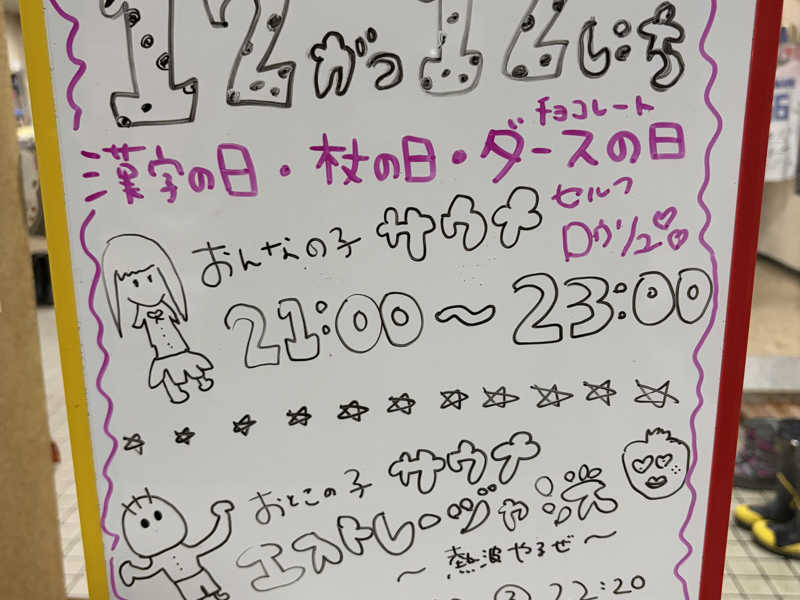 12がつ12にち
漢字の日・杖の日・ダースの日
チョコレート
おんなの子 サウナ
セルフ
ロウリュ♡♡
21:00〜23:00
☆☆☆☆☆☆☆☆☆☆
おとこの子 サウナ
エストレージャジス
〜熱波やるぜ〜
22:20